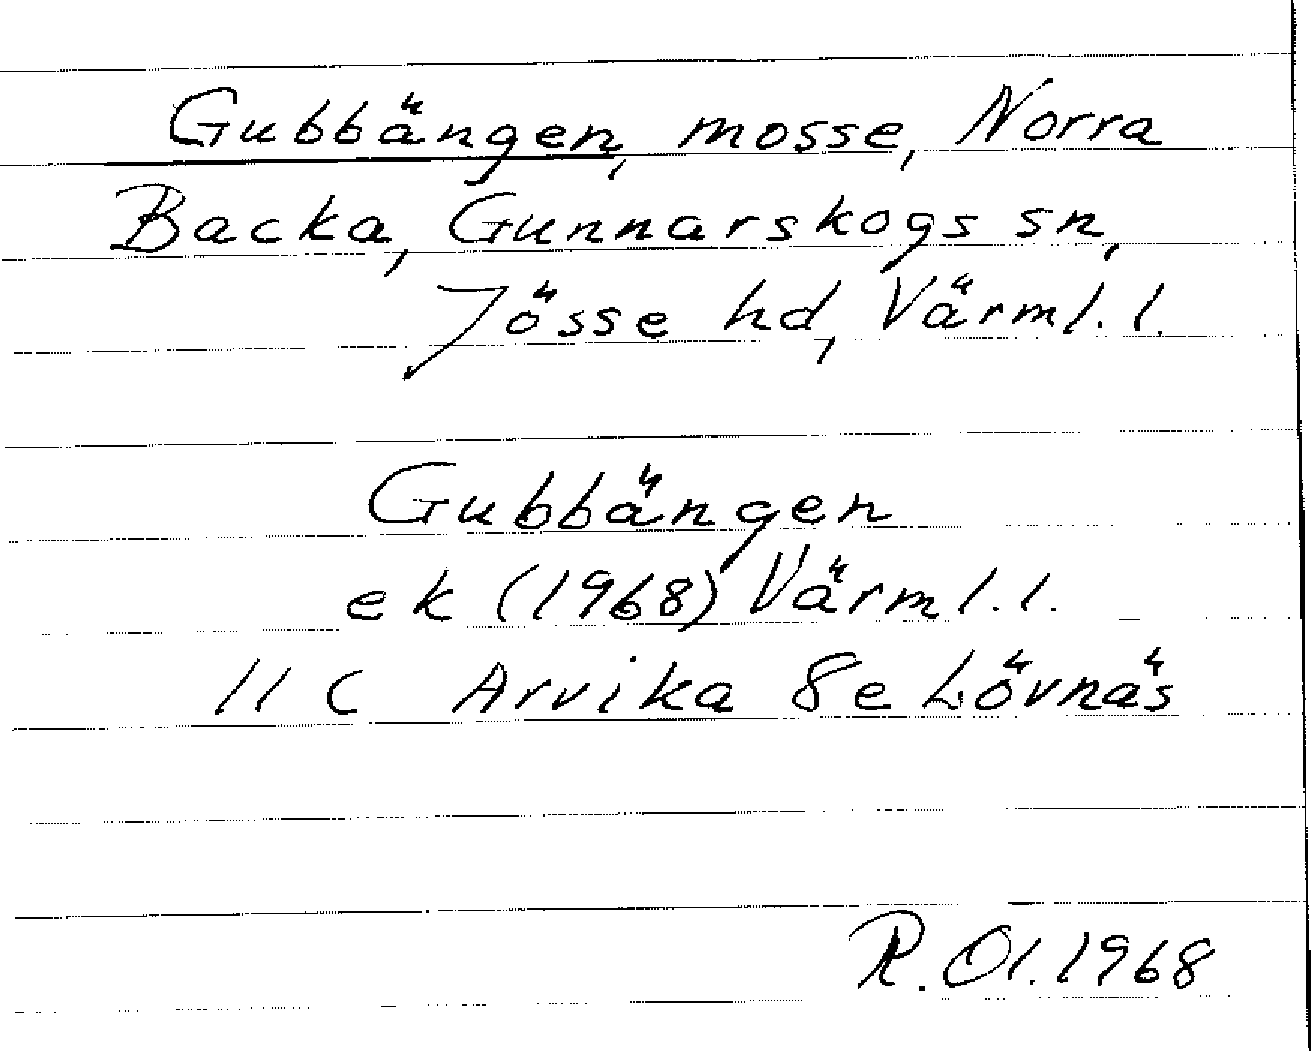 Gubbängen, mosse, Norra
Backa, Gunnarskogs sn,
Jösse hd, Värml. l.
Gubbängen
ek (1968) Värml. l.
11 C Arvika 8e Lövnäs
R. Ol. 1968